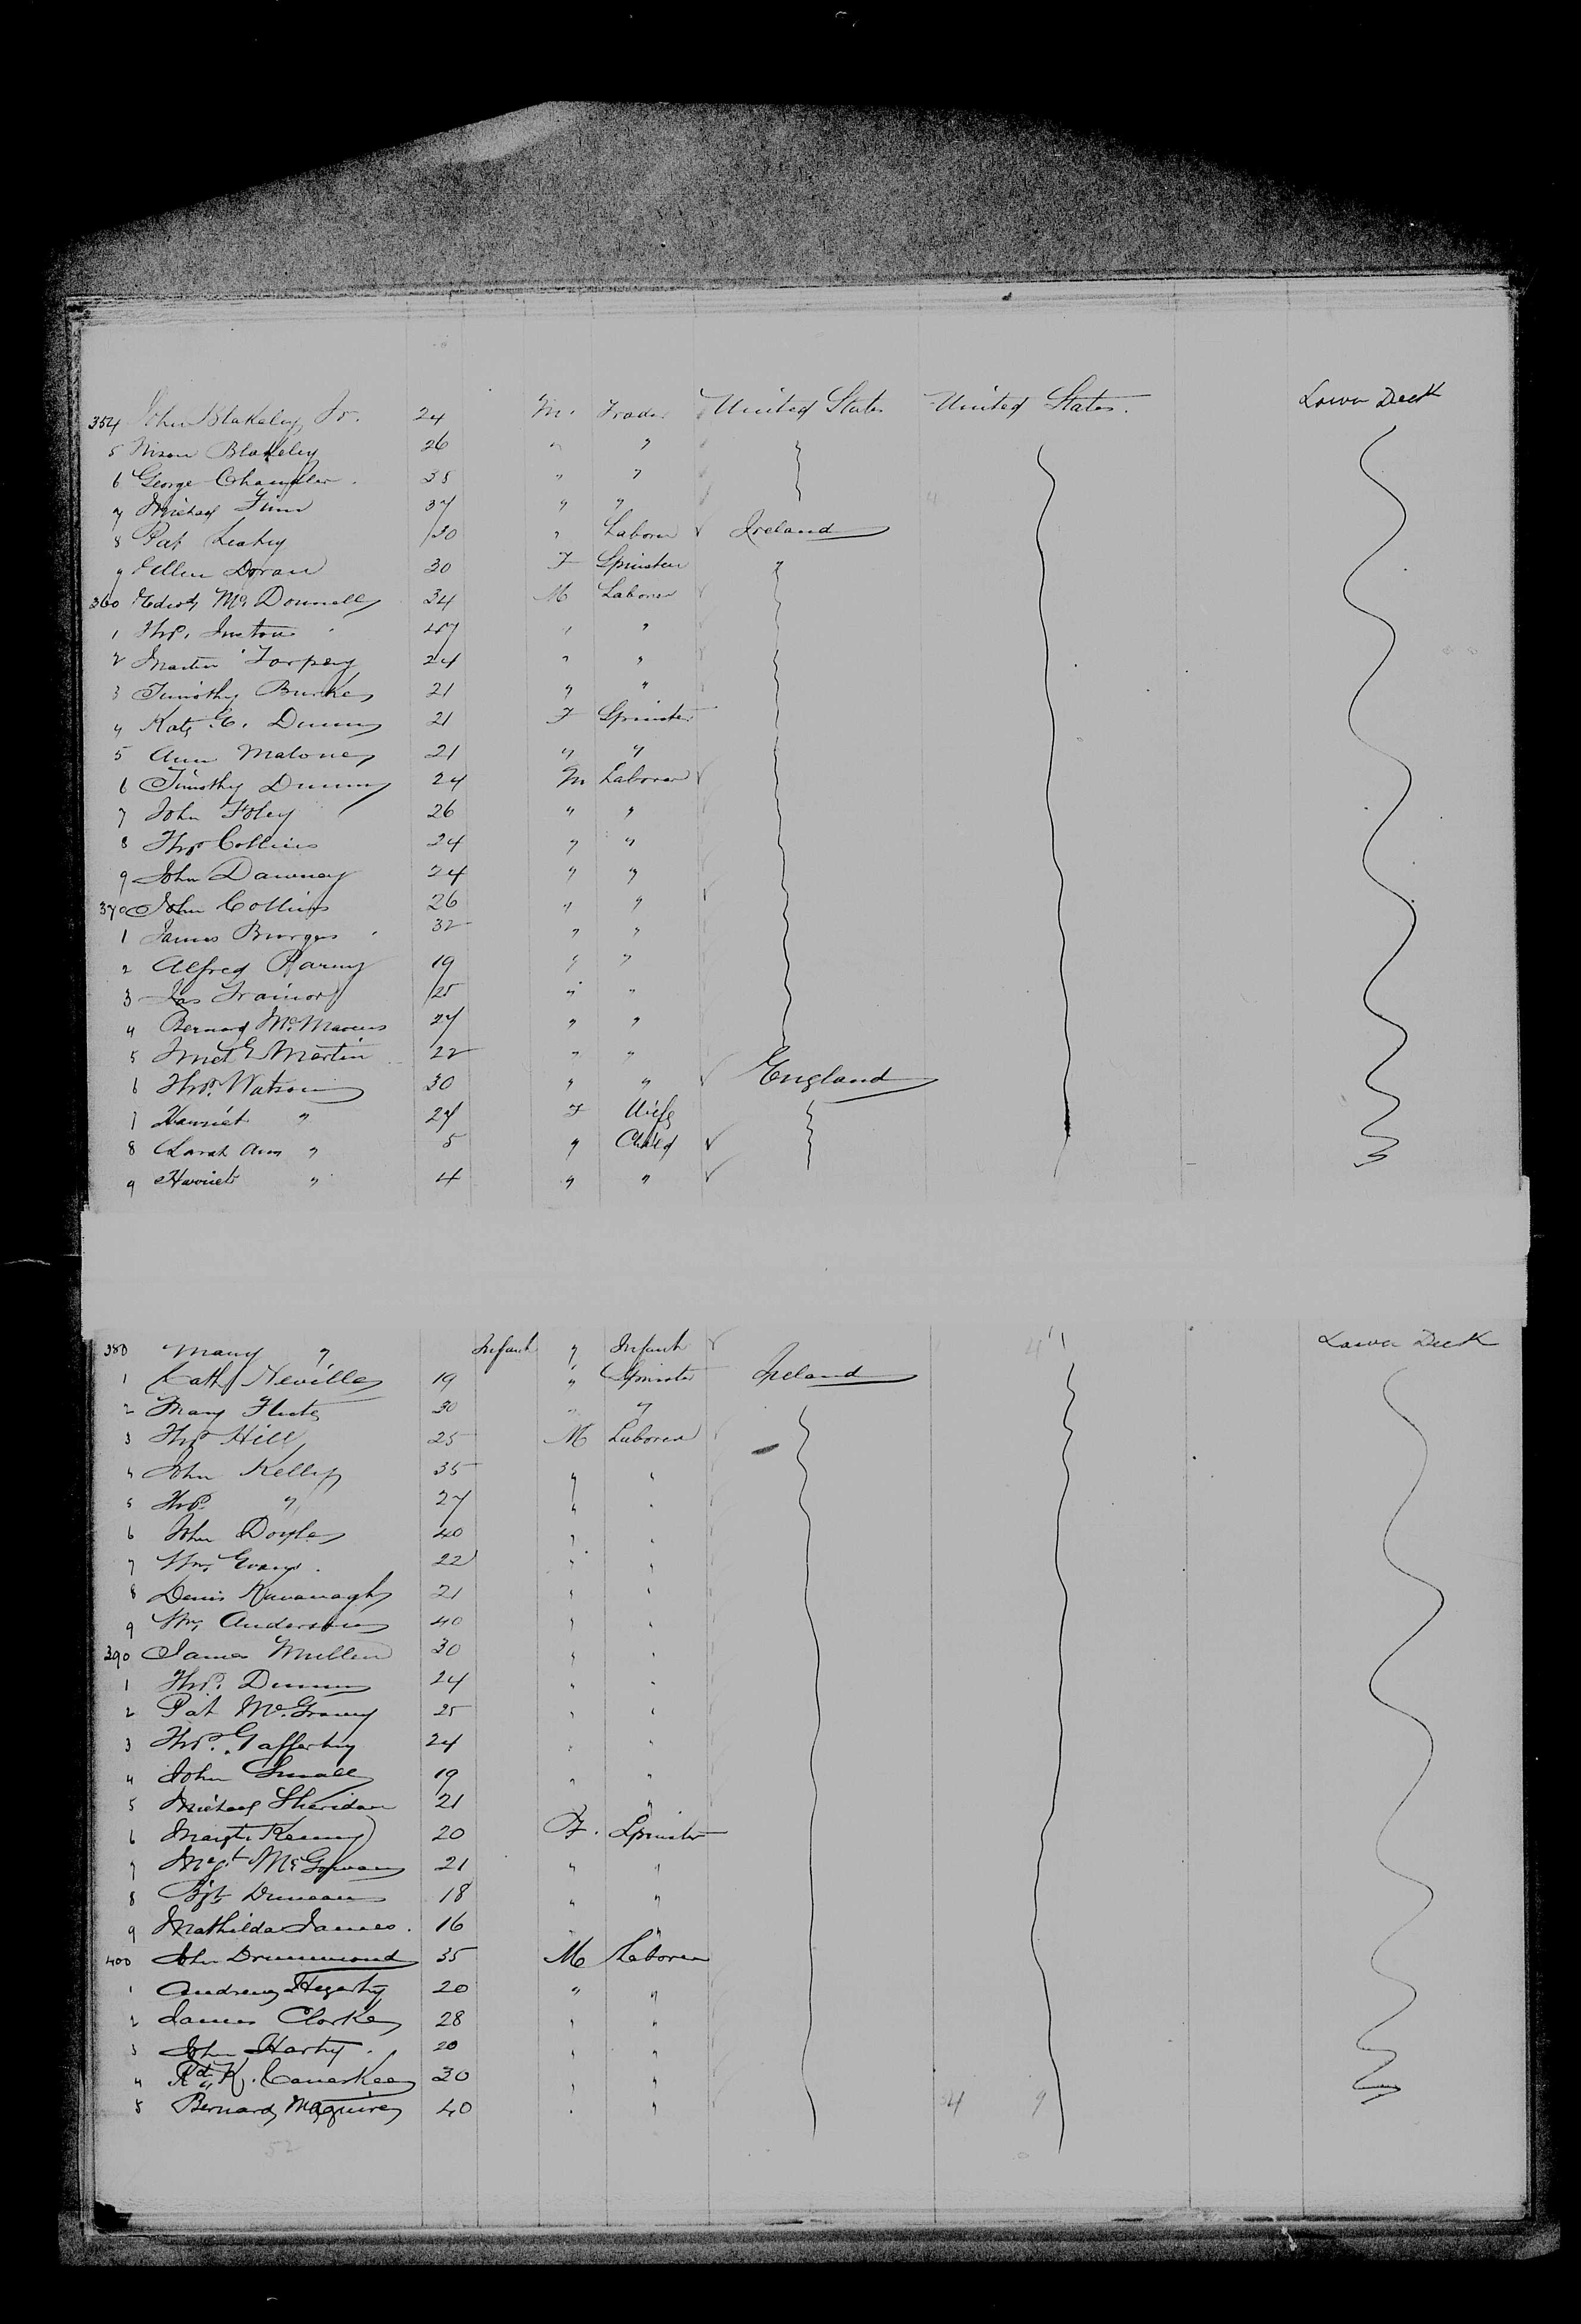 354 John Blakeley Jr. 24 M. Trader United States United States. Lower Deck
5 Nixon Blakeley 26 " "
6 George Chandler 35 " "
7 Michael Finn 37 " "
8 Pat Leahy 30 " Laborer Ireland
9 Ellen Doran 30 F Spinster "
360 Edwd McDonnell 34 M Laborer
1 Thos. 47 " "
2 Martin Torpey 24 " "
3 Timothy Burke 21 " "
4 Kate G. Dunn 21 F Spinster
5 Ann Maloney 21 " "
6 Timothy Dunn 24 M Laborer
7 John Foley 26 " "
8 Thos Collins 24 " "
9 John Dawney 24 " "
370 John Collins 26 " "
1 James Burges 32 " "
2 Alfred 19 " "
3 Jas Trainor 25 " "
4 Bernard McManus 27 " "
5 Martin 22 " "
6 Thos. Watson 30 " " England
7 Harriet " 27 F Wife
8 Sarah Ann " 5 " Child
9 Harriet " 4 " "
380 Mary " Infant " Infant Lower Deck
1 Cath Neville 19 " Spinster Ireland
2 Mary 30 " "
3 Thos Hill 25 M Laborer
4 John Kelly 35 " "
5 Thos. " 27 " "
6 John Doyle 40 " "
7 Wm Evans 22 " "
8 Denis Kavanagh 21 " "
9 Wm Anderson 40 " "
390 James Mullen 30 " "
1 Thos. Dunn 24 " "
2 Pat 25 " "
3 Thos. Gafferty 24 " "
4 John Small 19 " "
5 Michael Sheridan 21 " "
6 Margt. Kenny 20 F. Spinster
7 Mgt McGowan 21 " "
8 Bgt Duncan 18 " "
9 Mathilda James. 16 " "
400 John Drummond 35 M Laborer
1 Andrew Hegarty 20 " "
2 James Clarke 28 " "
3 John Harty. 20 " "
4 Rd. K. 30 " "
5 Bernard Maguire 40 " " 4 9
52